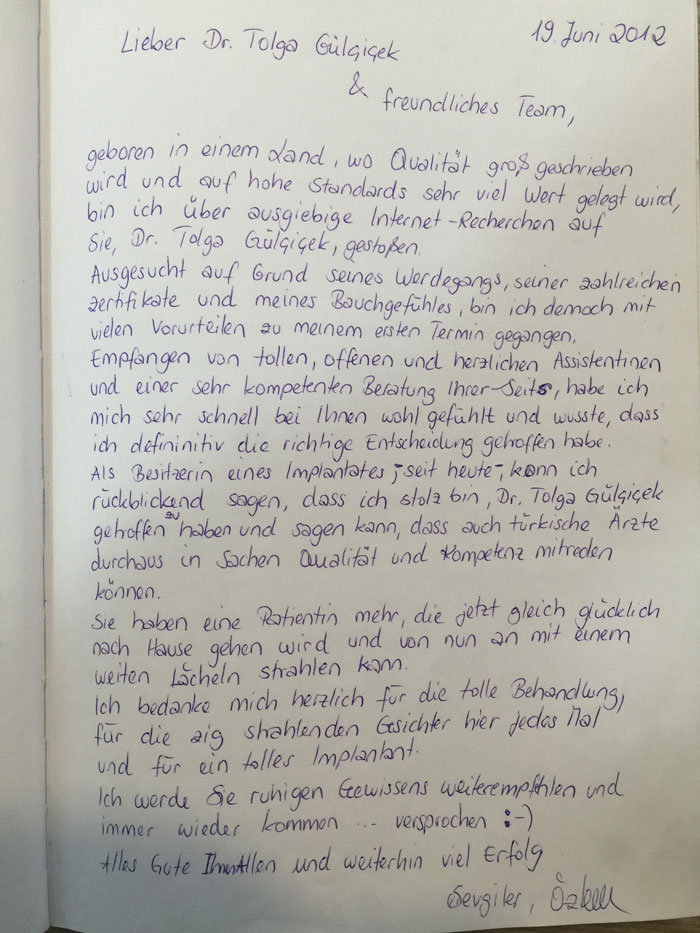 19. Juni 2012
Lieber Dr. Tolga Gülçiçek
&
freundliches Team,
geboren in einem Land, wo Qualität groß geschrieben
wird und auf hohe Standards sehr viel Wert gelegt wird,
bin ich über ausgiebige Internet-Recherchen auf
Sie, Dr. Tolga Gülçiçek, gestoßen.
Ausgesucht auf Grund seines Werdegangs, seiner zahlreichen
Zertifikate und meines Bauchgefühles, bin ich dennoch mit
vielen Vorurteilen zu meinem ersten Termin gegangen.
Empfangen von tollen, offenen und herzlichen Assistentinen
und einer sehr kompetenten Beratung Ihrer-Seits, habe ich
mich sehr schnell bei Ihnen wohl gefühlt und wusste, dass
ich defininitiv die richtige Entscheidung getroffen habe.
Als Besitzerin eines Implantates, -seit heute-, kann ich
rückblickend sagen, dass ich stolz bin, Dr. Tolga Gülçiçek
getroffen zu haben und sagen kann, dass auch türkische Ärzte
durchaus in Sachen Qualität und Kompetenz mitreden
können.
Sie haben eine Patientin mehr, die jetzt gleich glücklich
nach Hause gehen wird und von nun an mit einem
weiten Lächeln strahlen kann.
Ich bedanke mich herzlich für die tolle Behandlung,
für die strahlenden Gesichter hier jedes Mal
und für ein tolles Implantant.
Ich werde Sie ruhigen Gewissens weiterempfehlen und
immer wieder kommen ... versprochen :-)
Alles Gute Ihnen Allen und weiterhin viel Erfolg
Sevgiler,